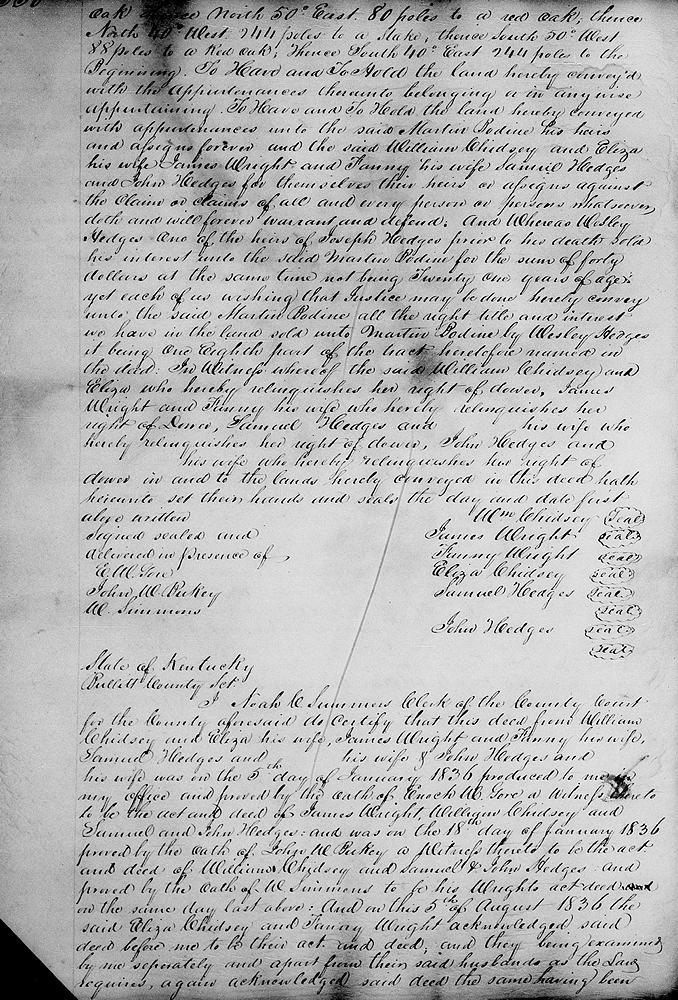 oak thence North 50° East 80 poles to a red oak; thence
North 40° West 244 poles to a Stake, thence South 50° West
88 poles to a Red Oak; thence South 40° East 244 poles to the
Beginning. To Have and To Hold the land hereby convey'd
with the appurtenances thereunto belonging or in any wise
appertaining. To Have and To Hold the land hereby conveyed
with appurtenances unto the said Martin Bodine his heirs
and assigns forever and the said William Chidsey and Eliza
his wife James Wright and Fanny his wife Samuel Hedges
and John Hedges for themselves their heirs or assigns against
the Claim or claims of all and every person or persons whatsoever,
doth and will forever warrant and defend. And Whereas Wesley
Hedges one of the heirs of Joseph Hedges prior to his death sold
his interest unto the said Martin Bodine for the sum of forty
dollars at the same time not being Twenty One years of age:
yet each of us wishing that Justice may be done hereby convey
unto the said Martin Bodine all the right title and interest
we have in the land sold unto Martin Bodine by Wesley Hedges
it being One Eighth part of the tract heretofore named in
the deed: In Witness whereof the said William Chidsey and
Eliza who hereby relinquishes her right of dower, James
Wright and Fanny his wife who hereby relinquishes her
right of Dower, Samuel Hedges and his wife who
hereby relinquishes her right of dower, John Hedges and
his wife who hereby relinquishes her right of
dower in and to the lands hereby conveyed in this deed hath
hereunto set their hands and seals the day and date first
above written Wm Chidsey Seal
Signed sealed and James Wright Seal
delivered in presence of Fanny Wright Seal
E. W. Gore Eliza Chidsey Seal
John W. Samuel Hedges Seal
W. Simmons Seal
John Hedges Seal
Seal
State of Kentucky
Bullitt County Sct
I Noah C Summers Clerk of the County Court
for the County aforesaid do Certify that this deed from William
Chidsey and Eliza his wife, James Wright and Fanny his wife,
Samuel Hedges and his wife & John Hedges and
his wife was on the 5th day of January 1836 produced to me in
my office and proved by the oath of Enoch W. Gore a Witness thereto
to be the act and deed of James Wright, William Chidsey and
Samuel and John Hedges: and was on the 18th day of January 1836
proved by the oath of John W a Witness thereto to be the act
and deed of William Chidsey and Samuel & John Hedges: and
proved by the Oath of W Simmons to be his Wrights act deed
on the same day last above: And on this 5th of August 1836 the
said Eliza Chidsey and Fanny Wright acknowledged said
deed before me to be their act and deed, and they being examined
by me seperately and apart from their said husbands as the Law
requires, again acknowledged said deed the same having been